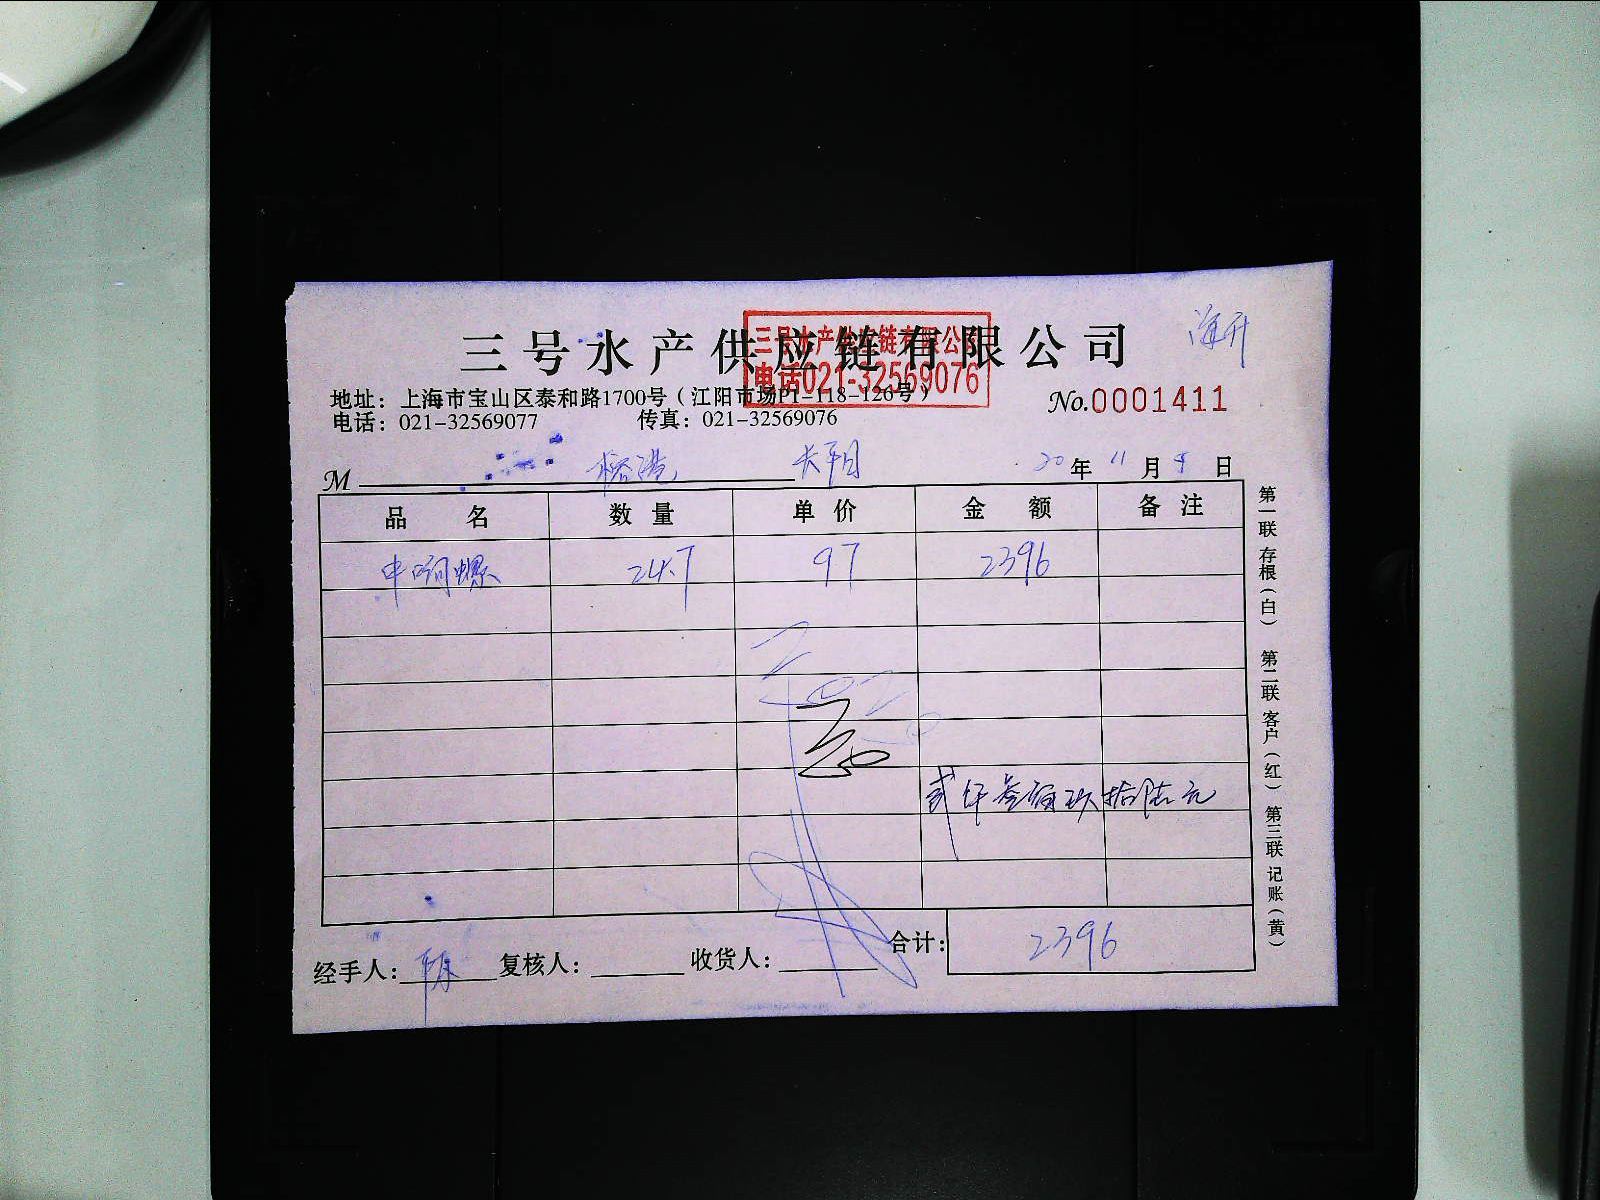 三号水产供应链有限公司
海升
三号水产供应链有限公司
电话021-32569076
地址：上海市宝山区泰和路1700号（江阳市场P1-118-126号）
No.0001411
电话：021-32569077 传真：021-32569076
M 榕港 大平日 20年 11月 9日
品名 数量 单价 金额 备注
中响螺 24.7 97 2396
贰仟叁佰玖拾陆元
合计： 2396
经手人： 复核人： 收货人：
第一联 存根（白） 第二联 客户（红） 第三联 记账（黄）